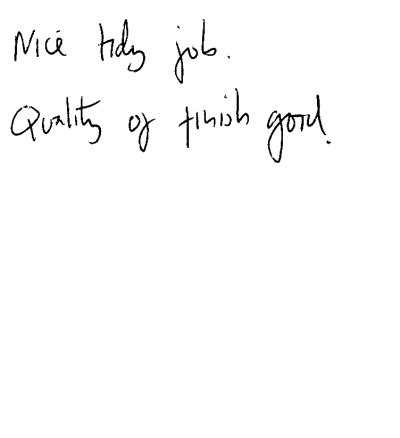 Nice tidy job.
Quality of finish good.